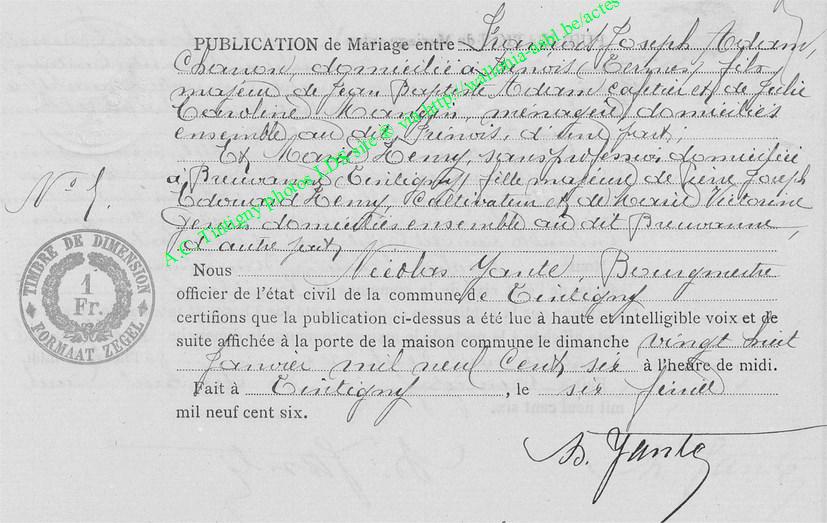 PUBLICATION de Mariage entre François Joseph Adam,
domicilié à Frenois (Termes) fils
majeur de Jean Baptiste Adam et de Julie
Caroline Mangin, ménagère, domiciliés
ensemble au dit Frenois, d'une part;
Et Marie Henry, sans profession, domiciliée
à Breuvanne Tintigny, fille majeure de Pierre Joseph
Edouard Henry, Cultivateur et de Marie Victorine
domiciliés ensemble au dit Breuvanne,
d'autre part,
N° 5.
TIMBRE DE DIMENSION
1
Fr.
FORMAAT ZEGEL
Nous Nicolas Yante, Bourgmestre
officier de l'état civil de la commune, de Tintigny
certifions que la publication ci-dessus a été lue à haute et intelligible voix et de
suite affichée à la porte de la maison commune le dimanche vingt huit
Janvier mil neuf Cent six à l'heure de midi.
Fait à Tintigny, le six février
mil neuf cent six.
Yante
A.C. Tintigny photos LDS site @ via http://wallonia-asbl.be/actes